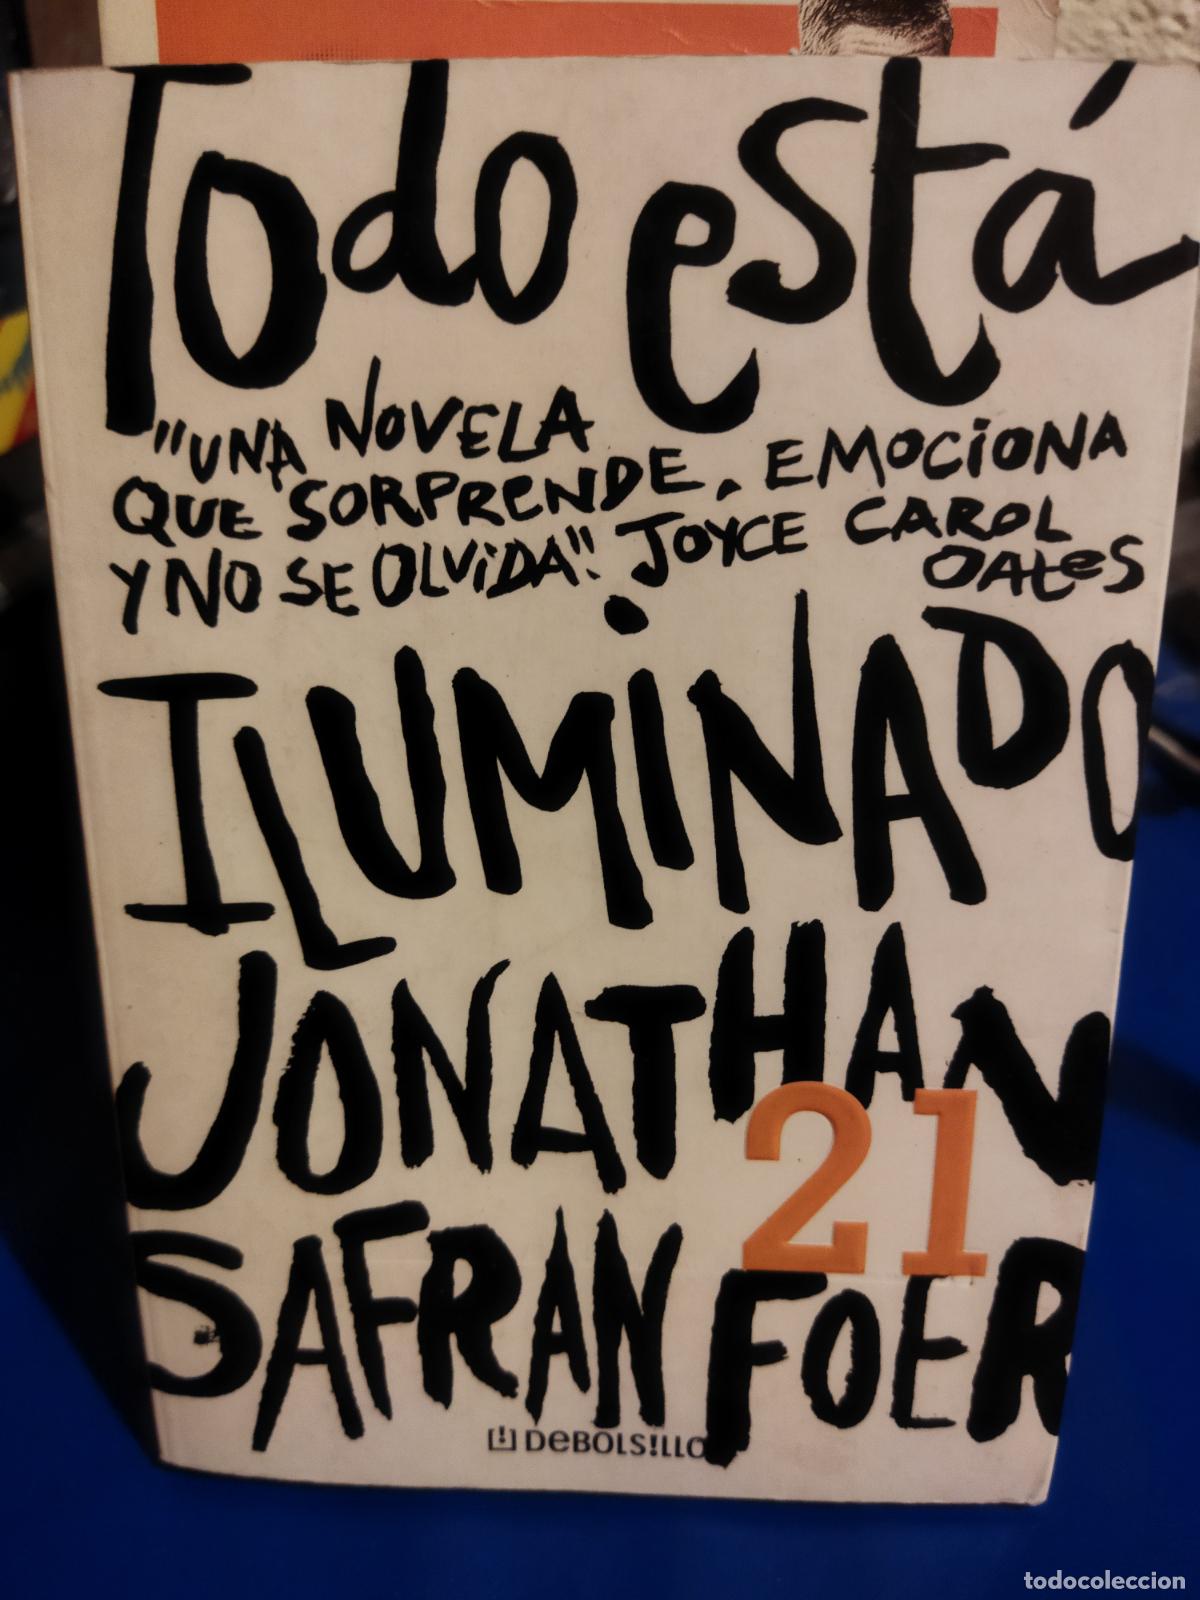 Todo está
"UNA NOVELA
QUE SORPRENDE, EMOCIONA
Y NO SE OLVIDA". JOYCE CAROL
OATES
ILUMINADO
JONATHAN
21
SAFRAN FOER
DEBOLS!LLO
todocoleccion